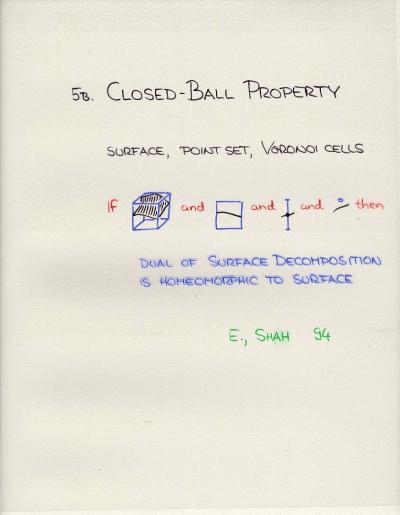 5B. CLOSED-BALL PROPERTY
SURFACE, POINT SET, VORONOI CELLS
IF and and and then
DUAL OF SURFACE DECOMPOSITION
IS HOMEOMORPHIC TO SURFACE
E., SHAH 94